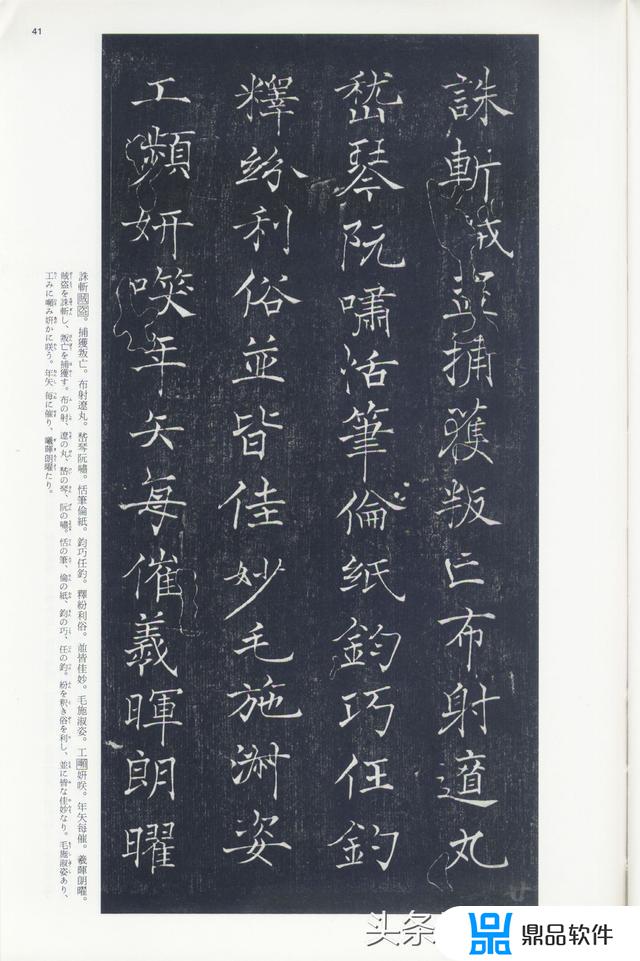 41
誅斬賊盗捕獲叛亡布射遼丸
嵇琴阮嘯恬筆倫紙鈞巧任釣
釋紛利俗並皆佳妙毛施淑姿
工頻妍咲年矢每催羲暉朗曜
誅斬賊盗。捕獲叛亡。布射遼丸。嵇琴阮嘯。恬筆倫紙。鈞巧任釣。釋紛利俗。並皆佳妙。毛施淑姿。工嚬妍咲。年矢每催。羲暉朗曜。
賊盗を誅斬し、叛亡を捕獲す。布の射、遼の丸、嵇の琴、阮の嘯。恬の筆、倫の紙、鈞の巧、任の釣。紛を釈き俗を利し、並に皆な佳妙なり。毛施淑姿あり、
工みに嚬み妍かに咲う。年矢毎に催り、曦暉朗曜たり。
头条
鼎品软件